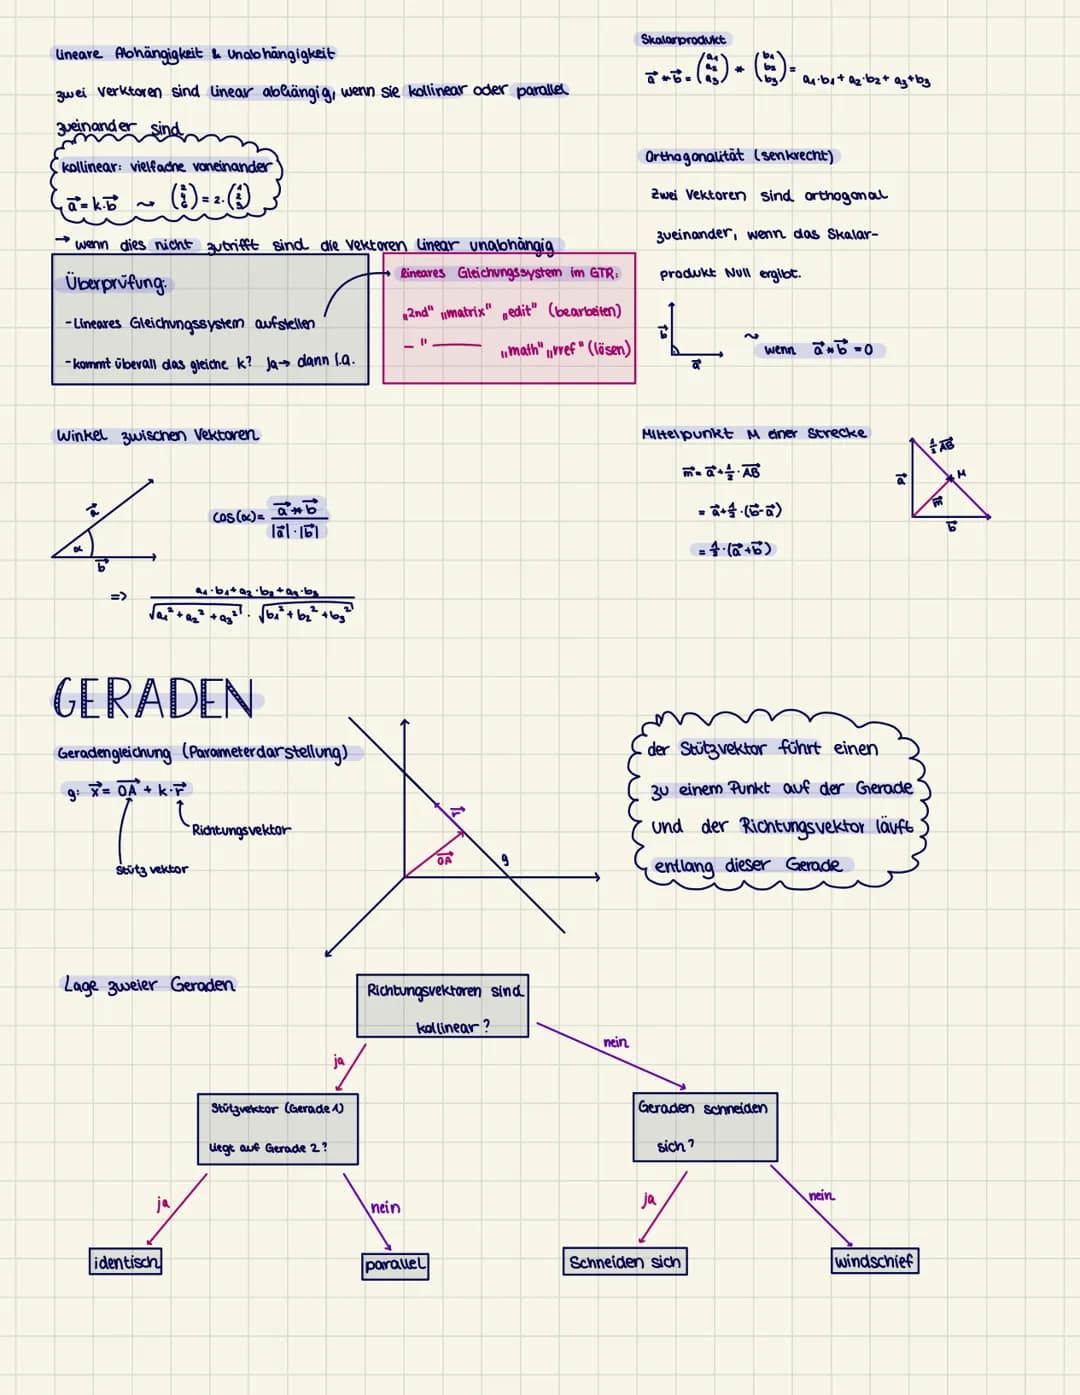 Lineare Abhängigkeit & Unabhängigkeit
zwei Verktoren sind linear abhängig, wenn sie kollinear oder parallel
zueinander sind
kollinear: vielfache voneinander
a⃗ = k·b⃗ ~> (2 4 6) = 2·(1 2 3)
→ wenn dies nicht zutrifft sind die Vektoren linear unabhängig
Überprüfung:
-Lineares Gleichungssystem aufstellen
-kommt überall das gleiche k? Ja→ dann l.a.
lineares Gleichungssystem im GTR:
„2nd" „matrix" „edit" (bearbeiten)
– " ——— „math" „rref" (lösen)
Skalarprodukt
a⃗ * b⃗ = (a₁ a₂ a₃) * (b₁ b₂ b₃) = a₁·b₁+a₂·b₂+a₃+b₃
Orthogonalität (senkrecht)
Zwei Vektoren sind orthogonal
zueinander, wenn das Skalar-
produkt Null ergibt.
b⃗
a⃗
~> wenn a⃗ * b⃗ = 0
Winkel zwischen Vektoren
a⃗
α
b⃗
cos(α) = a⃗ * b⃗ / |a⃗|·|b⃗|
=> a₁·b₁+a₂·b₂+a₃·b₃ / √a₁²+a₂²+a₃² · √b₁²+b₂²+b₃²
Mittelpunkt M einer Strecke
m⃗ = a⃗ + ½·AB⃗
= a⃗+½·(b⃗-a⃗)
= ½·(a⃗+b⃗)
½ AB⃗
a⃗
M
m⃗
b⃗
GERADEN
Geradengleichung (Parameterdarstellung)
g: x⃗ = OA⃗ + k·r⃗
Richtungsvektor
Stütz vektor
r⃗
OA⃗
g
der Stützvektor führt einen
zu einem Punkt auf der Gerade
und der Richtungsvektor läuft
entlang dieser Gerade
Lage zweier Geraden
Richtungsvektoren sind
kollinear?
ja
nein
Stützvektor (Gerade 1)
liegt auf Gerade 2?
Geraden schneiden
sich?
ja
nein
ja
nein
identisch
parallel
Schneiden sich
windschief